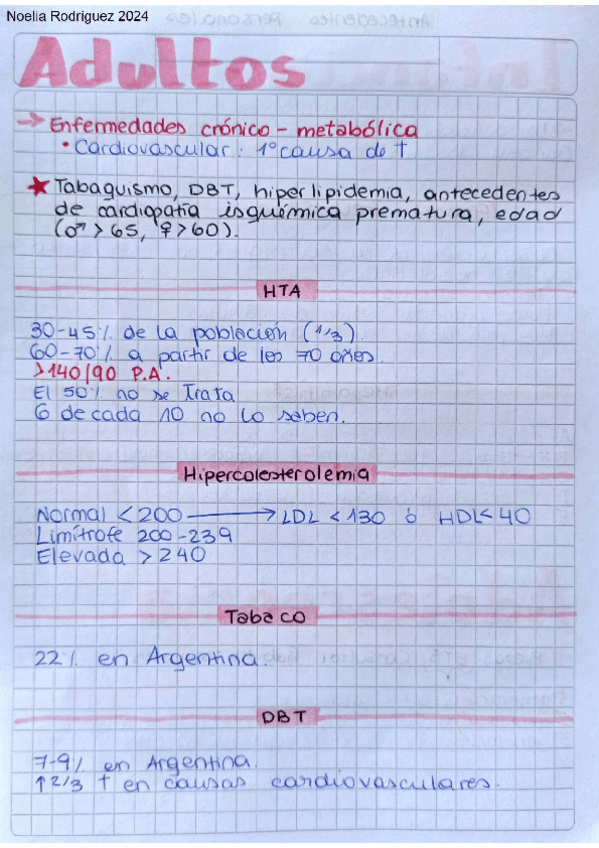 Noelia Rodriguez 2024
Adultos
→ Enfermedades crónico - metabólica
• Cardiovascular: 1º causa de †
★ Tabaquismo, DBT, hiperlipidemia, antecedentes
de cardiopatía isquémica prematura, edad
(♂ > 65, ♀ > 60).
HTA
30-45% de la población (1/3)
60-70% a partir de los 70 años.
>140/90 P.A.
El 50% no se trata
6 de cada 10 no lo saben.
Hipercolesterolemia
Normal < 200 → LDL < 130 ó HDL < 40
Limítrofe 200-239
Elevada > 240
Tabaco
22% en Argentina.
DBT
7-9% en Argentina.
↑ 2/3 † en causas cardiovasculares.